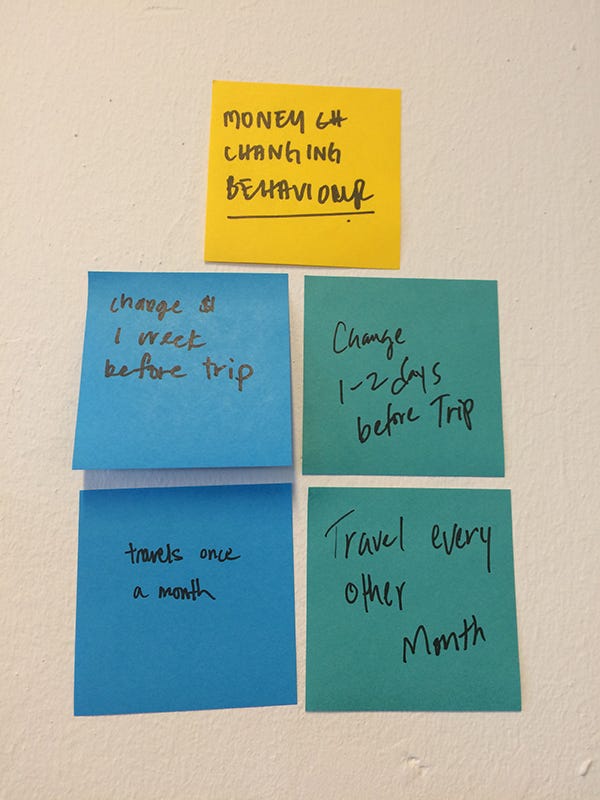 MONEY CH
CHANGING
BEHAVIOUR
change $
1 week
before trip
Change
1-2 days
before Trip
travels once
a month
Travel every
other
Month